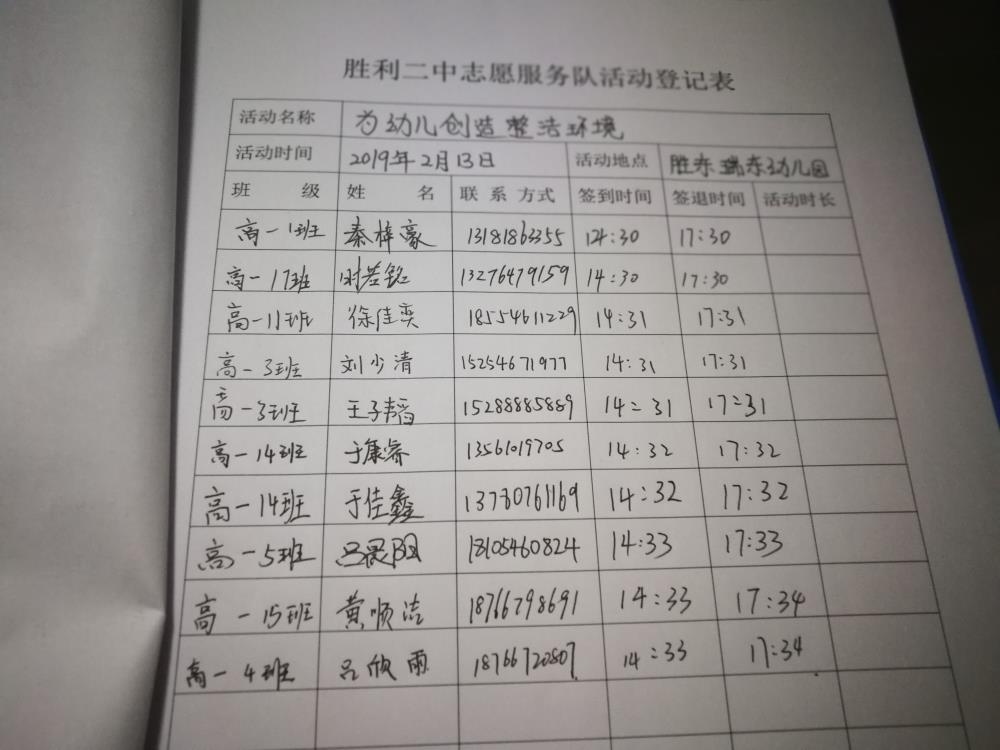 胜利二中志愿服务队活动登记表
活动名称 为幼儿创造整洁环境
活动时间 2019年2月13日 活动地点 胜东瑞东幼儿园
班 级 姓 名 联系方式 签到时间 签退时间 活动时长
高一1班 秦梓豪 13181863355 14:30 17:30
高一17班 时若铭 13276479159 14:30 17:30
高一11班 徐佳奕 18554611229 14:31 17:31
高一3班 刘少清 15254671977 14:31 17:31
高一3班 王子韬 15288885889 14:31 17:31
高一14班 于康睿 13561019705 14:32 17:32
高一14班 于佳鑫 13780761169 14:32 17:32
高一5班 吕晨阳 13105460824 14:33 17:33
高一15班 黄顺洁 18766798691 14:33 17:34
高一4班 吕欣雨 18766720807 14:33 17:34